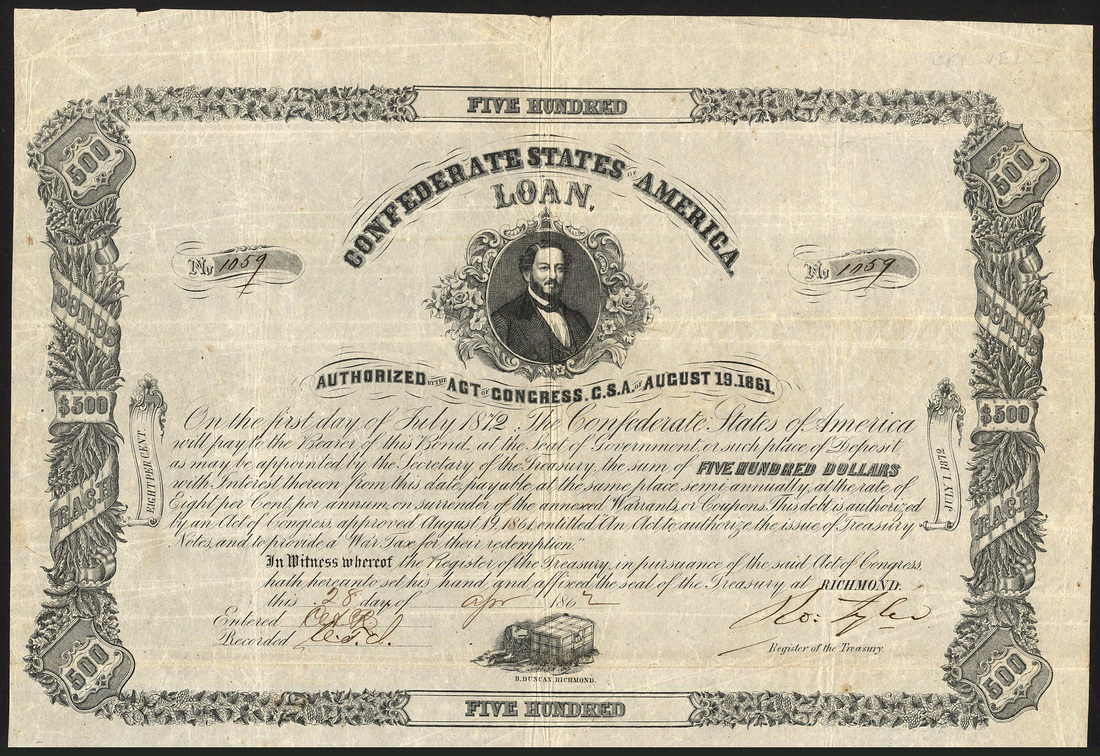 FIVE HUNDRED
500
500
CONFEDERATE STATES OF AMERICA,
LOAN,
No 1059
No 1059
BONDS
BONDS
AUTHORIZED BY THE ACT OF CONGRESS. C.S.A. OF AUGUST 19.1861.
$500
$500
EIGHT PER CENT
JULY 1. 1872
EACH
EACH
On the first day of July 1872, The Confederate States of America
will pay to the Bearer of this Bond, at the Seat of Government, or such place of Deposit
as may be appointed by the Secretary of the Treasury, the sum of FIVE HUNDRED DOLLARS
with Interest thereon from this date, payable at the same place, semi annually, at the rate of
Eight per Cent, per annum, on surrender of the annexed Warrants, or Coupons. This debt is authorized
by an Act of Congress, approved August 19, 1861, entitled "An Act to authorize the issue of Treasury
Notes, and to provide a War Tax for their redemption."
In Witness whereof the Register of the Treasury, in pursuance of the said Act of Congress,
hath hereunto set his hand and affixed the seal of the Treasury at RICHMOND,
this 28 day of apr 1862
Entered
Recorded
Ro: Tyler
Register of the Treasury.
B. DUNCAN, RICHMOND.
500
500
FIVE HUNDRED